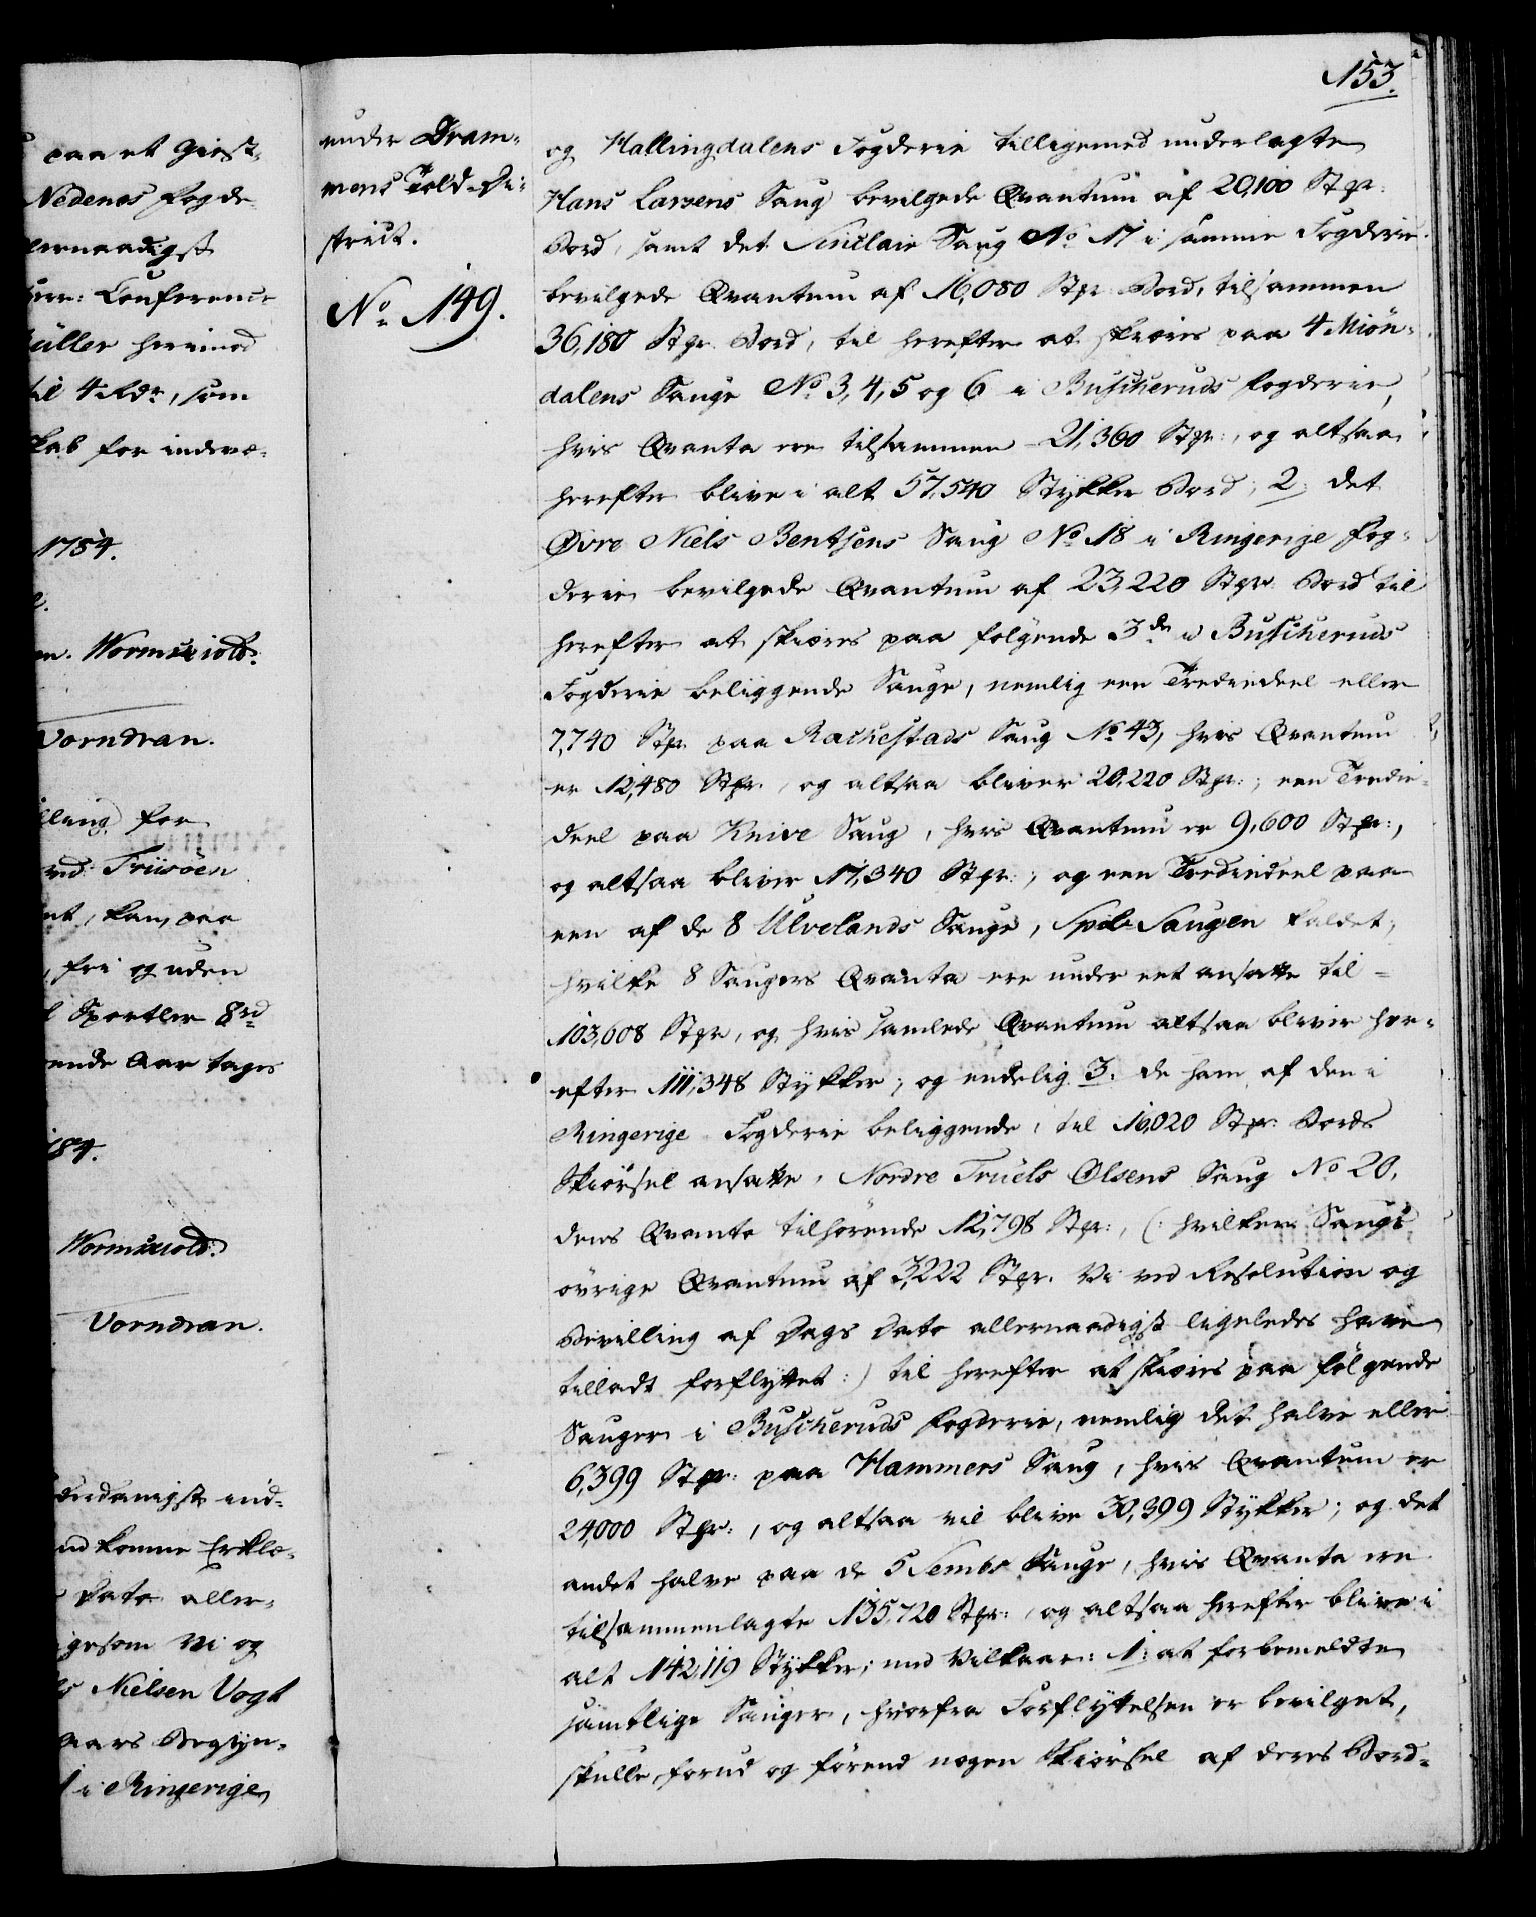 153.
paa et Giest-
Nedenes Fogde-
lernaadigst
herr: Conference
üller herimod
til 4 Rdr, som
skab for indvæ-
1784.
en. Wormskiold.
Vorndran.
lling for
ved Friisöen
nt, kan, paa
, fri og uden
l Sportler 8rd
ende Aar tages
184.
Wormskiold.
Vorndran.
derdanigste ind-
nd komne Erklæ-
Dato aller-
igesom Vi og
ls Nielsen Vogt
aars Begyn-
1 i Ringerige
under Dram-
mens Told-Di-
strict.
No 149.
og Hallingdalens Fogderie tilligemed underlagte
Hans Larsens Saug bevilgede Qvantum af 20,100 Stpr.
Bord, samt det Sinclair Saug No 17 i samme Fogderie
bevilgede Qvantum af 16,080 Stpr. Bord, tilsammen
36,180 Stpr. Bord, til herefter at skiæres paa 4 Miön-
dalens Sauge No 3, 4, 5 og 6 i Buscheruds Fogderie,
hvis Qvanta ere tilsammen 21,360 Stpr:, og altsaa
herefter blive i alt 57,540 Stykker Bord; 2. det
Övre Niels Bentsens Saug No 18 i Ringerige Fog-
derie bevilgede Qvantum af 23,220 Stpr. Bord til
herefter at skiæres paa fölgende 3de i Buscheruds
Fogderie beliggende Sauge, nemlig een Trediedeel eller
7,740 Stpr. paa Rachestads Saug No 43, hvis Qvantum
er 12,480 Stpr., og altsaa bliver 20,220 Stpr.; een Tredie-
deel paa Knive Saug, hvis Qvantum er 9,600 Stpr:,
og altsaa bliver 17,340 Stpr:; og een Trediedeel paa
een af de 8 Ulvelands Sauge, Spol-Saugen kaldet,
hvilke 8 Saugers Qvanta ere under eet ansatte til-
103,608 Stpr, og hvis samlede Qvantum altsaa bliver her-
efter 111,348 Stykker; og endelig 3. de ham af den i
Ringerige Fogderie beliggende, til 16,020 Stpr: Bords
Skiörsel ansatte, Nordre Truels Olsens Saug No 20,
dens Qvanto tilhörende 12,798 Stpr:, (: hvilken Saugs
övrige Qvantum af 3,222 Stpr. Vi ved Resolution og
Bevilling af Dags Dato allernaadigst ligeledes have
tilladt forflyttet :) til herefter at skiæres paa fölgende
Sauger i Buscheruds Fogderie, nemlig det halve eller
6,399 Stpr: paa Hammers Saug, hvis Qvantum er
24,000 Stpr:, og altsaa vil blive 30,399 Stykker; og det
andet halve paa de 5 Sembs Sauge, hvis Qvanta ere
tilsammenlagte 135,720 Stpr:, og altsaa herefter blive i
alt 142,119 Stykker; med Vilkaar: 1. at forbemeldte
samtlige Sauger, hvorfra Forflyttelsen er bevilget,
skulle, forud og förend nogen Skiörsel af deres Bord-